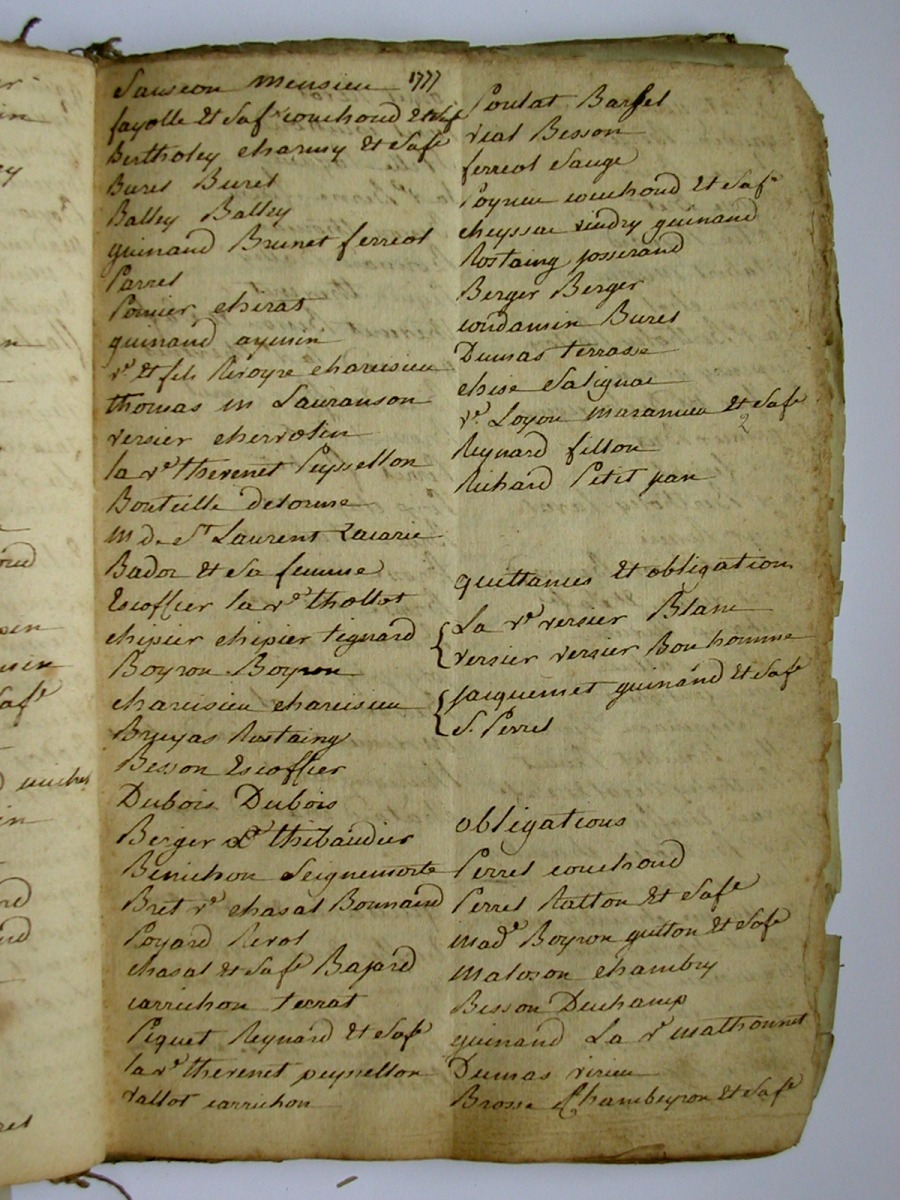 Sauseon Mensieu 1777
fayolle Et Saf couchoud Et Saf
Bertholey charmy Et Safe
Buret Buret
Balley Balley
guinand Brunet ferreol
Parret
Ponier chirat
guinand aymin
ve Et fils Reroyre charcisieu
thomas m Lauranson
versier chervolin
la ve thevenet Peyssellon
Bouteille delorme
m de St Laurent Zacarie
Bador Et Sa femme
Escoffier la ve thollot
chipier chipier tignard
Boyron Boyron
charcisieu charcisieu
Bruyas Rostaing
Besson Escoffier
Dubois Dubois
Berger thibaudier
Benichon Seignemorte
Bret ve chasal Bonnand
Poyard Revol
chasal et Safe Bajard
carrichon terrat
Piquet Reynard Et Safe
la ve thevenet peyssellon
vallot carrichon
Poulat Barjel
vial Besson
ferreol Sauge
Poyneu couchoud Et Safe
cheyssac vindry guinand
Rostaing josserand
Berger Berger
condamin Buret
Dumas terrasse
chise Salignac
ve Loyon maramieu Et Safe
2
Reynard fillon
Richard Petit jan
quittances Et obligation
La ve versier Blanc
versier versier Bon homme
jacquemet guinand Et Safe
S. Perret
obligations
Perret couchoud
Perret Ratton Et Safe
made Boyron guitton Et Safe
maloson chambry
Besson Duchamp
guinand La ve mathonnet
Dumas virieu
Brosse Chambeyron Et Safe